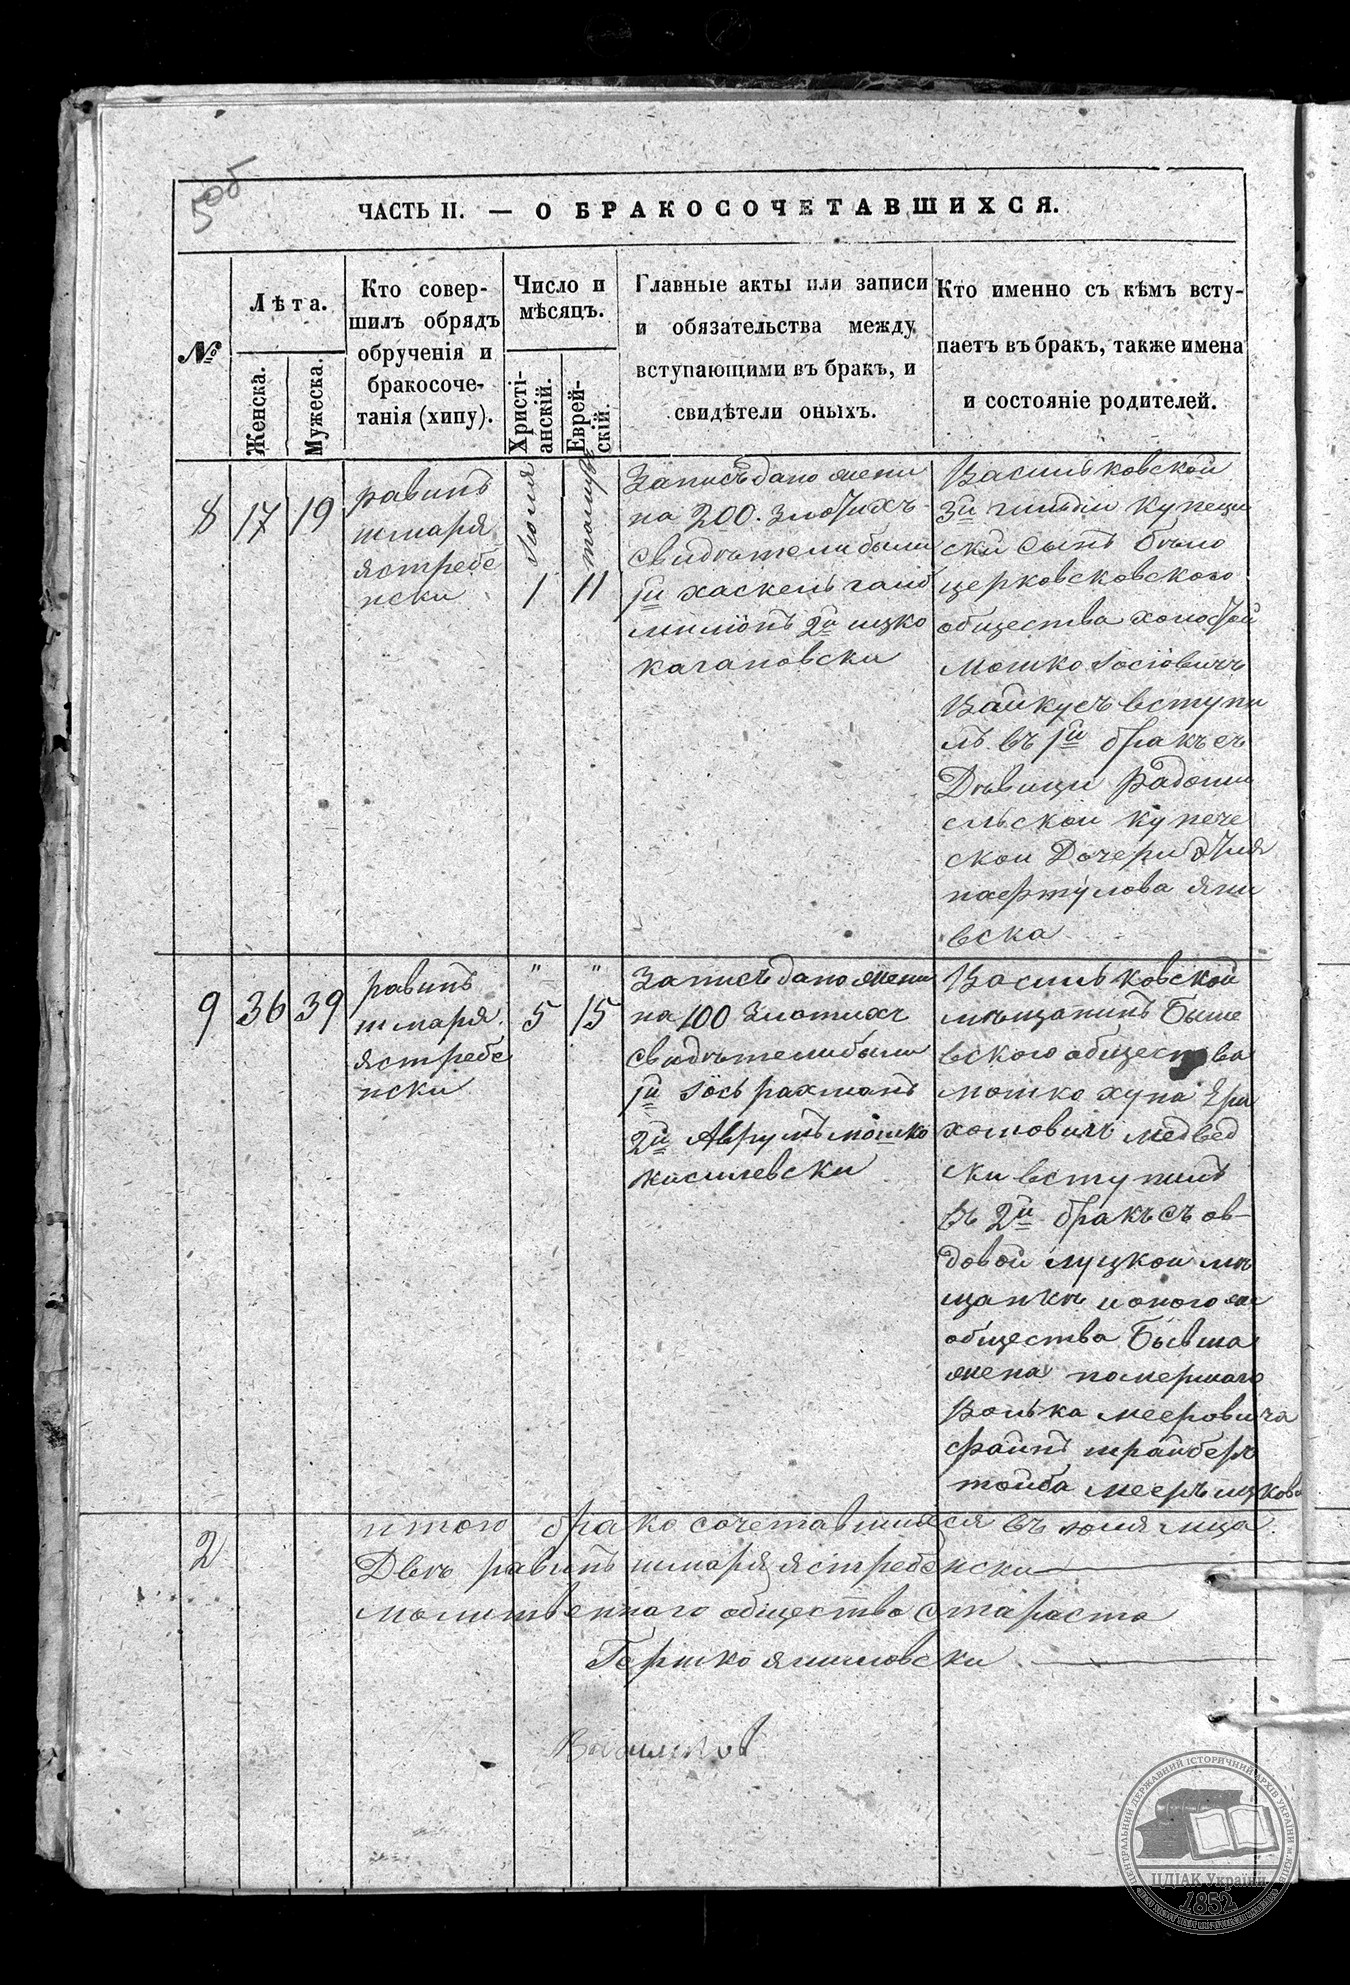 5об
ЧАСТЬ II. — О БРАКОСОЧЕТАВШИХСЯ.
№
Лѣта.
Женска.
Мужеска.
Кто совер-
шилъ обрядъ
обрученія и
бракосоче-
танія (хипу).
Число и
мѣсяцъ.
Христі-
анскій.
Еврей-
скій.
Главные акты или записи
и обязательства между
вступающими въ бракъ, и
свидѣтели оныхъ.
Кто именно съ кѣмъ всту-
паетъ въ бракъ, также имена
и состояніе родителей.
8
17
19
равинъ
шмаря
ястребе
нски
Июля
1
тамуз
11
Записъ дано жени
на 200. Злотихъ
свидѣтели были
1й хаскель
2й ицко
кагановски
Васильковской
3й гильдіи купеци
ски сынъ бѣло
церковсковского
общества холостой
мошко Іосіовичъ
Вайкусъ вступи
лъ въ 1й бракъ съ
Дѣвици Радоми
сльской купече
ской Дочери
вска
9
36
39
равинъ
шмаря
ястребе
нски
"
5
"
15
Записъ дано жени
на 100 Злотихъ
свидѣтели были
1й Іось рахманъ
2й Аврумъ мошко
жасилевски
Васильковской
мѣщанинъ Быше
вского общества
мошко хуна Ера
хомовичъ медвед
ски вступилъ
въ 2й бракъ съ ов-
довой луцкой мѣ
щанкѣ и оного же
общества Бывша
жена помершаго
Волька мееровича
файнъ
тойба мееръ ицкова
2
итого бракосочетавшихся въ юля мца
Двѣ равинъ шмаря ястребенски
молитвенного общества Староста
Гершко